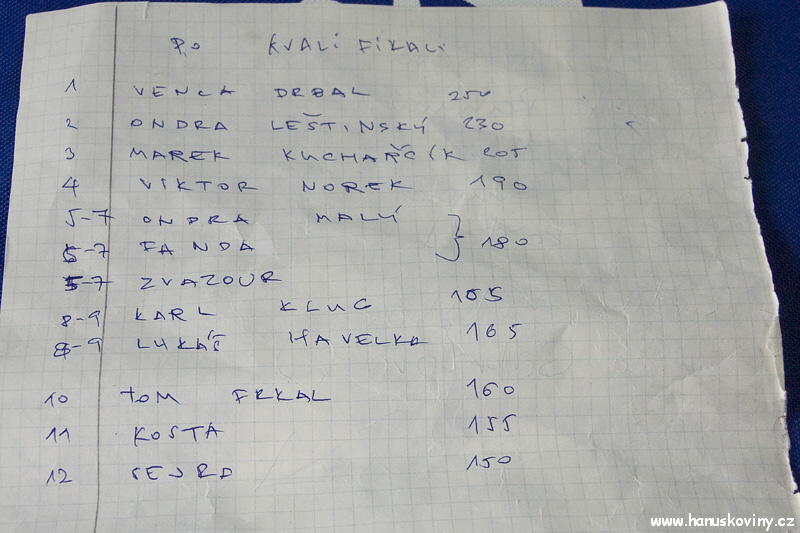 PO KVALIFIKACI
1 VENCA DRBAL 250
2 ONDRA LEŠTINSKÝ 230
3 MAREK KUCHAŘČÍK 205
4 VIKTOR NOREK 190
5-7 ONDRA MALÝ
5-7 FANDA } 180
5-7 ZVAZOUR
8-9 KARL KLUC 165
8-9 LUKÁŠ HAVELKA 165
10 TOM FRKAL 160
11 KOSTA 155
12 150
www.hanuskoviny.cz